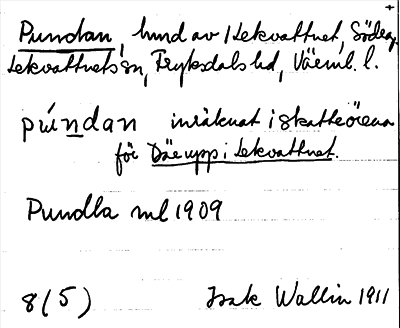 Pundan, hmd av 1 Lekvattnet, Södra
Lekvattnets sn, Fryksdals hd, Värml. l.
púndan inräknat i skatteörena
för Däruppi Lekvattnet.
Pundla ml 1909
8 (5) Isak Wallin 1911